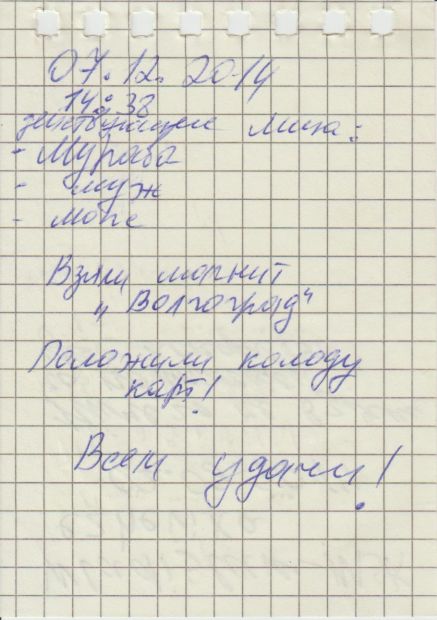 07.12.2014
14:38
действующие лица:
- Мураба
- муж
- мопс
Взяли магнит
„Волгоград"
Положили колоду
карт!
Всем удачи!